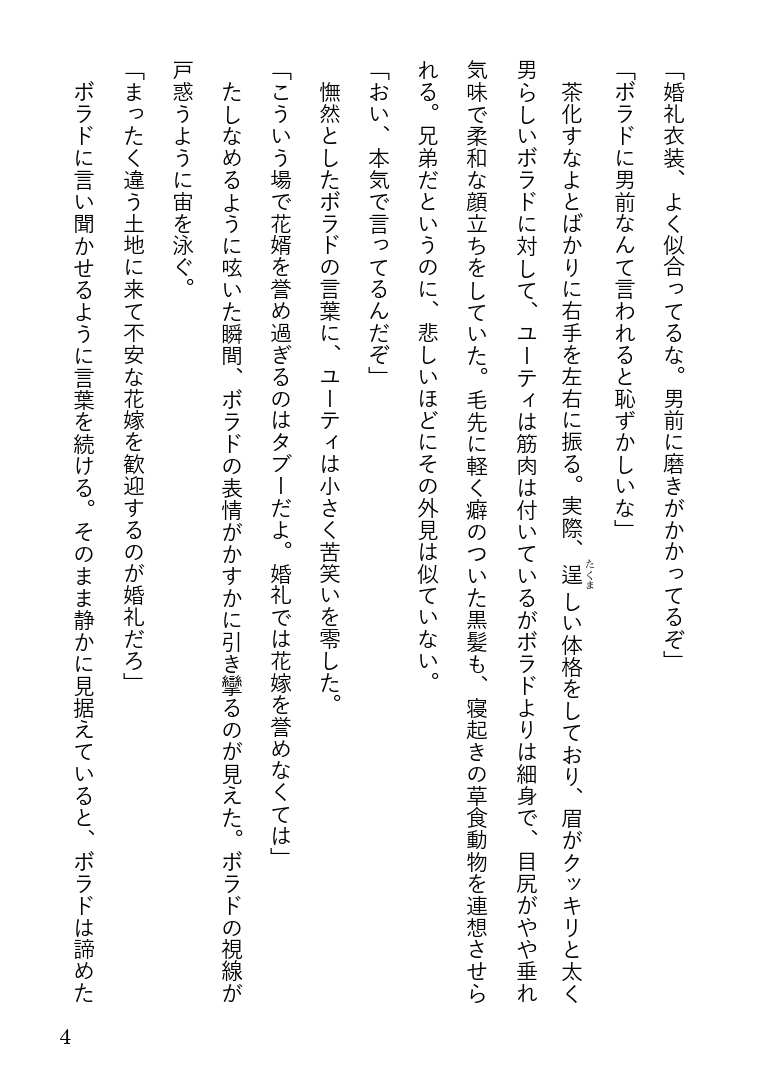 「婚礼衣装、よく似合ってるな。男前に磨きがかかってるぞ」
「ボラドに男前なんて言われると恥ずかしいな」
茶化すなよとばかりに右手を左右に振る。実際、逞しい体格をしており、眉がクッキリと太く
たくま
男らしいボラドに対して、ユーティは筋肉は付いているがボラドよりは細身で、目尻がやや垂れ
気味で柔和な顔立ちをしていた。毛先に軽く癖のついた黒髪も、寝起きの草食動物を連想させら
れる。兄弟だというのに、悲しいほどにその外見は似ていない。
「おい、本気で言ってるんだぞ」
憮然としたボラドの言葉に、ユーティは小さく苦笑いを零した。
「こういう場で花婿を誉め過ぎるのはタブーだよ。婚礼では花嫁を誉めなくては」
たしなめるように呟いた瞬間、ボラドの表情がかすかに引き攣るのが見えた。ボラドの視線が
戸惑うように宙を泳ぐ。
「まったく違う土地に来て不安な花嫁を歓迎するのが婚礼だろ」
ボラドに言い聞かせるように言葉を続ける。そのまま静かに見据えていると、ボラドは諦めた
4